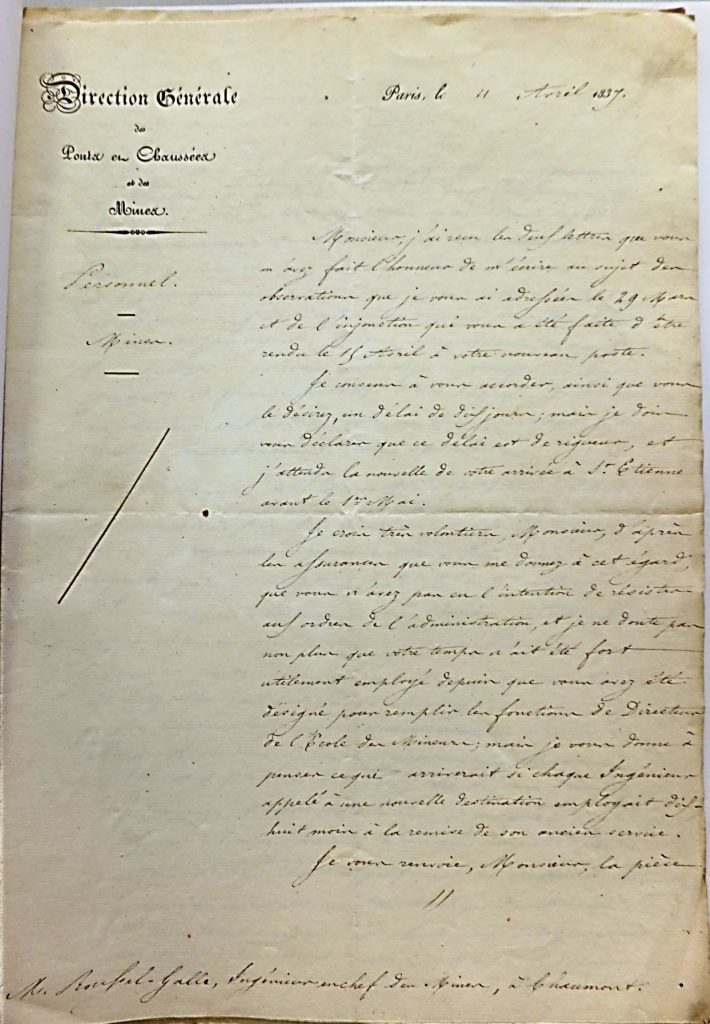 Direction Générale
des
Ponts et Chaussées
et des
Mines.
Paris, le 11 Avril 1837.
Personnel.
Mines.
Monsieur, j'ai reçu les deux lettres que vous
m'avez fait l'honneur de m'écrire au sujet des
observations que je vous ai adressées le 29 Mars
et de l'injonction qui vous a été faite d'être
rendu le 15 Avril à votre nouveau poste.
Je consens à vous accorder, ainsi que vous
le désirez, un délai de dix jours; mais je dois
vous déclarer que ce délai est de rigueur, et
j'attends la nouvelle de votre arrivée à St. Etienne
avant le 1er Mai.
Je crois très volontiers, Monsieur, d'après
les assurances que vous me donnez à cet égard,
que vous n'avez pas eu l'intention de résister
aux ordres de l'administration, et je ne doute pas
non plus que votre temps n'ait été fort
utilement employé depuis que vous avez été
désigné pour remplir les fonctions de Directeur
de l'École des Mineurs; mais je vous donne à
penser ce qui arriverait si chaque Ingénieur
appelé à une nouvelle destination employait dix-
huit mois à la remise de son ancien service.
Je vous renvoie, Monsieur, la pièce
11
M. Roussel-Galle, Ingénieur en chef des Mines, à Chaumont.